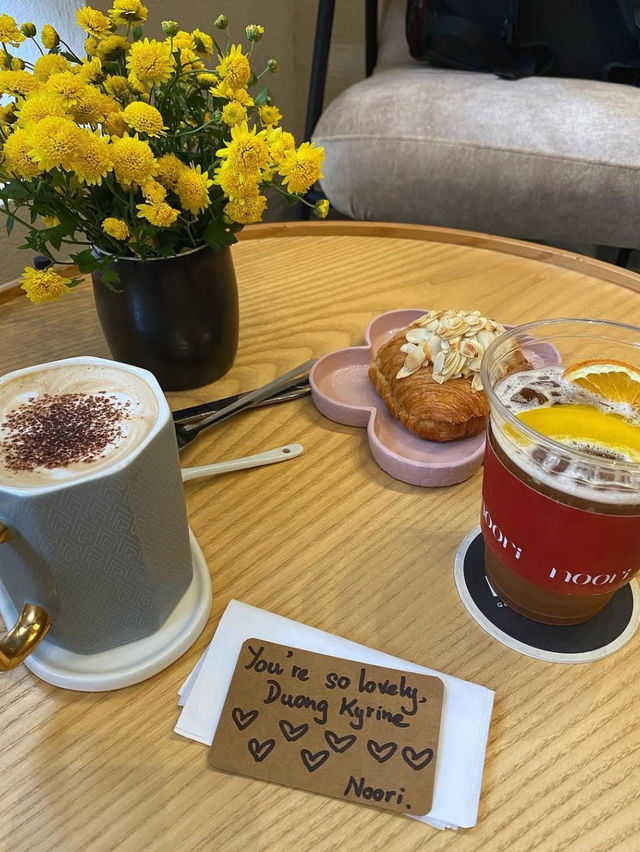 noori noori
You're so lovely,
Duong Kyrine
Noori.